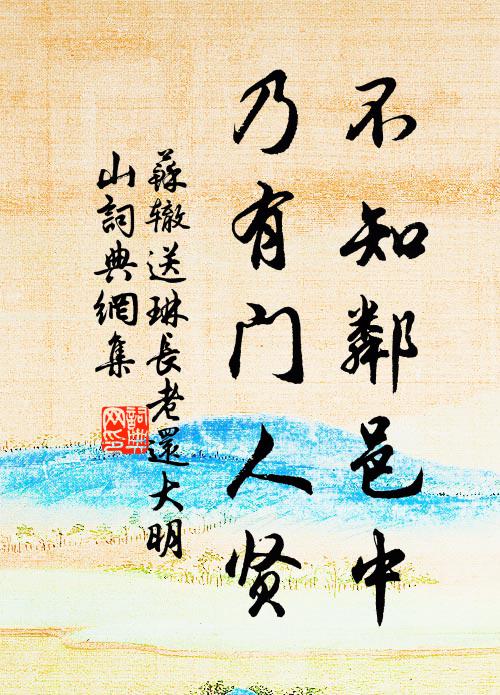 不知鄰邑中
乃有门人贤
蘇辙送琳長老還大明
山詞典網集
詞典
网印